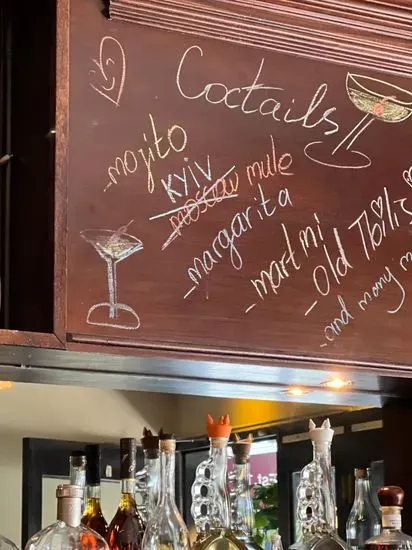 Coctails
- mojito
KYIV
moscow mule
- margarita
- martini
- old Tbilis
- and mony m